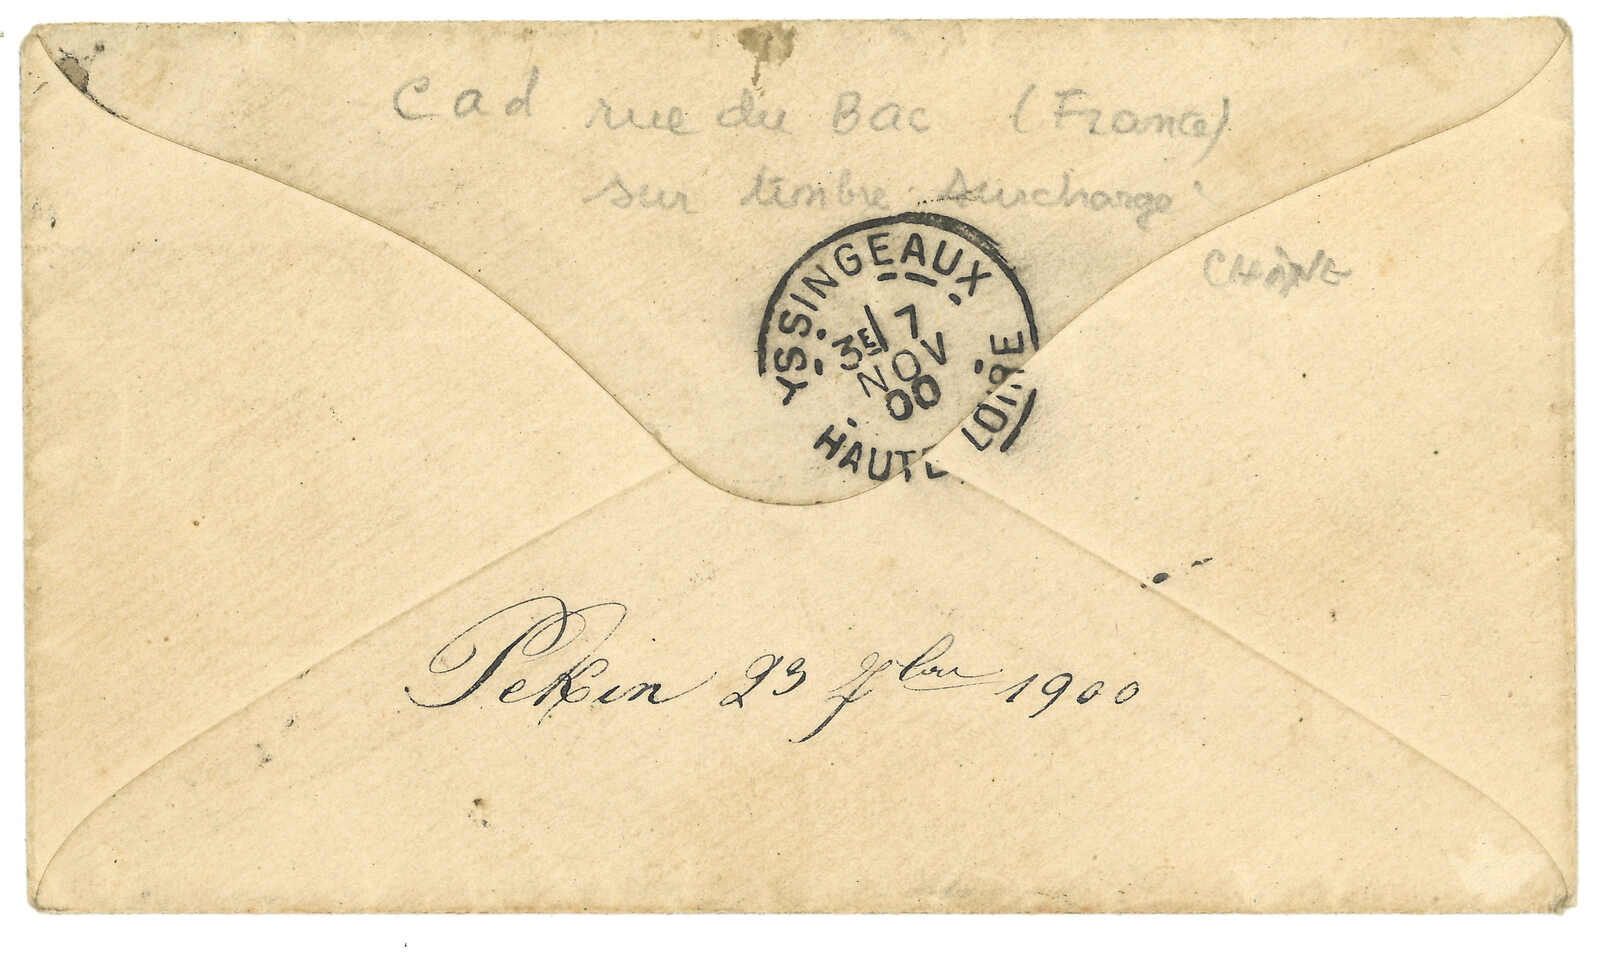 Cad rue du Bac (France)
sur timbre surchargé
CHINE
YSSINGEAUX
3E/7
NOV
00
HAUTE LOIRE
Pekin 23 7bre 1900